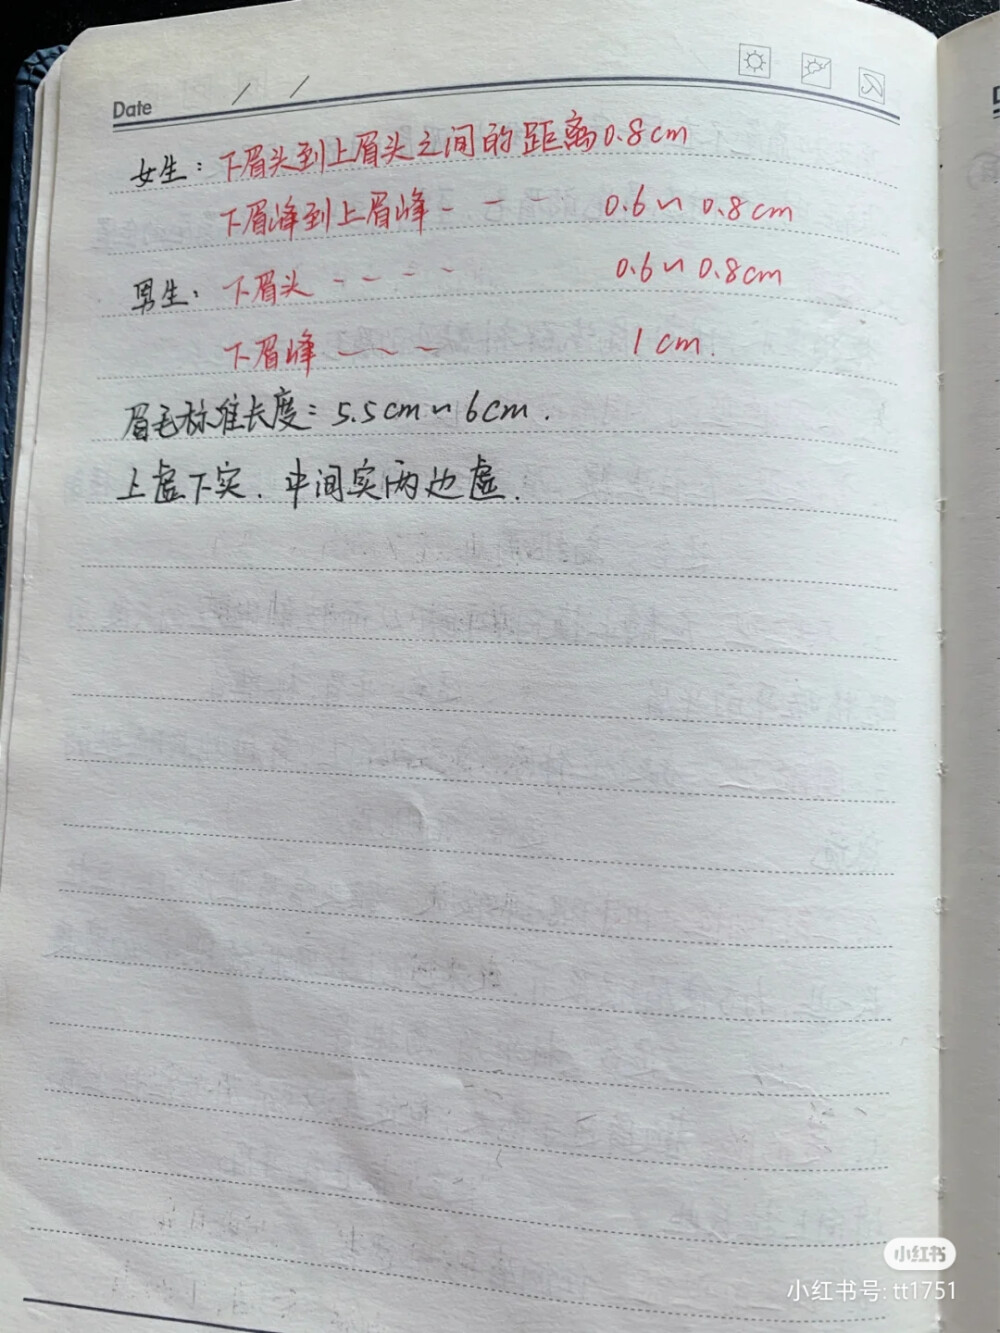 Date / /
女生：下眉头到上眉头之间的距离0.8cm
下眉峰到上眉峰- - - 0.6~0.8cm
男生：下眉头- - - - 0.6~0.8cm
下眉峰 ~ ~ ~ 1cm.
眉毛标准长度：5.5cm~6cm.
上虚下实．中间实两边虚．
小红书
小红书号：tt1751